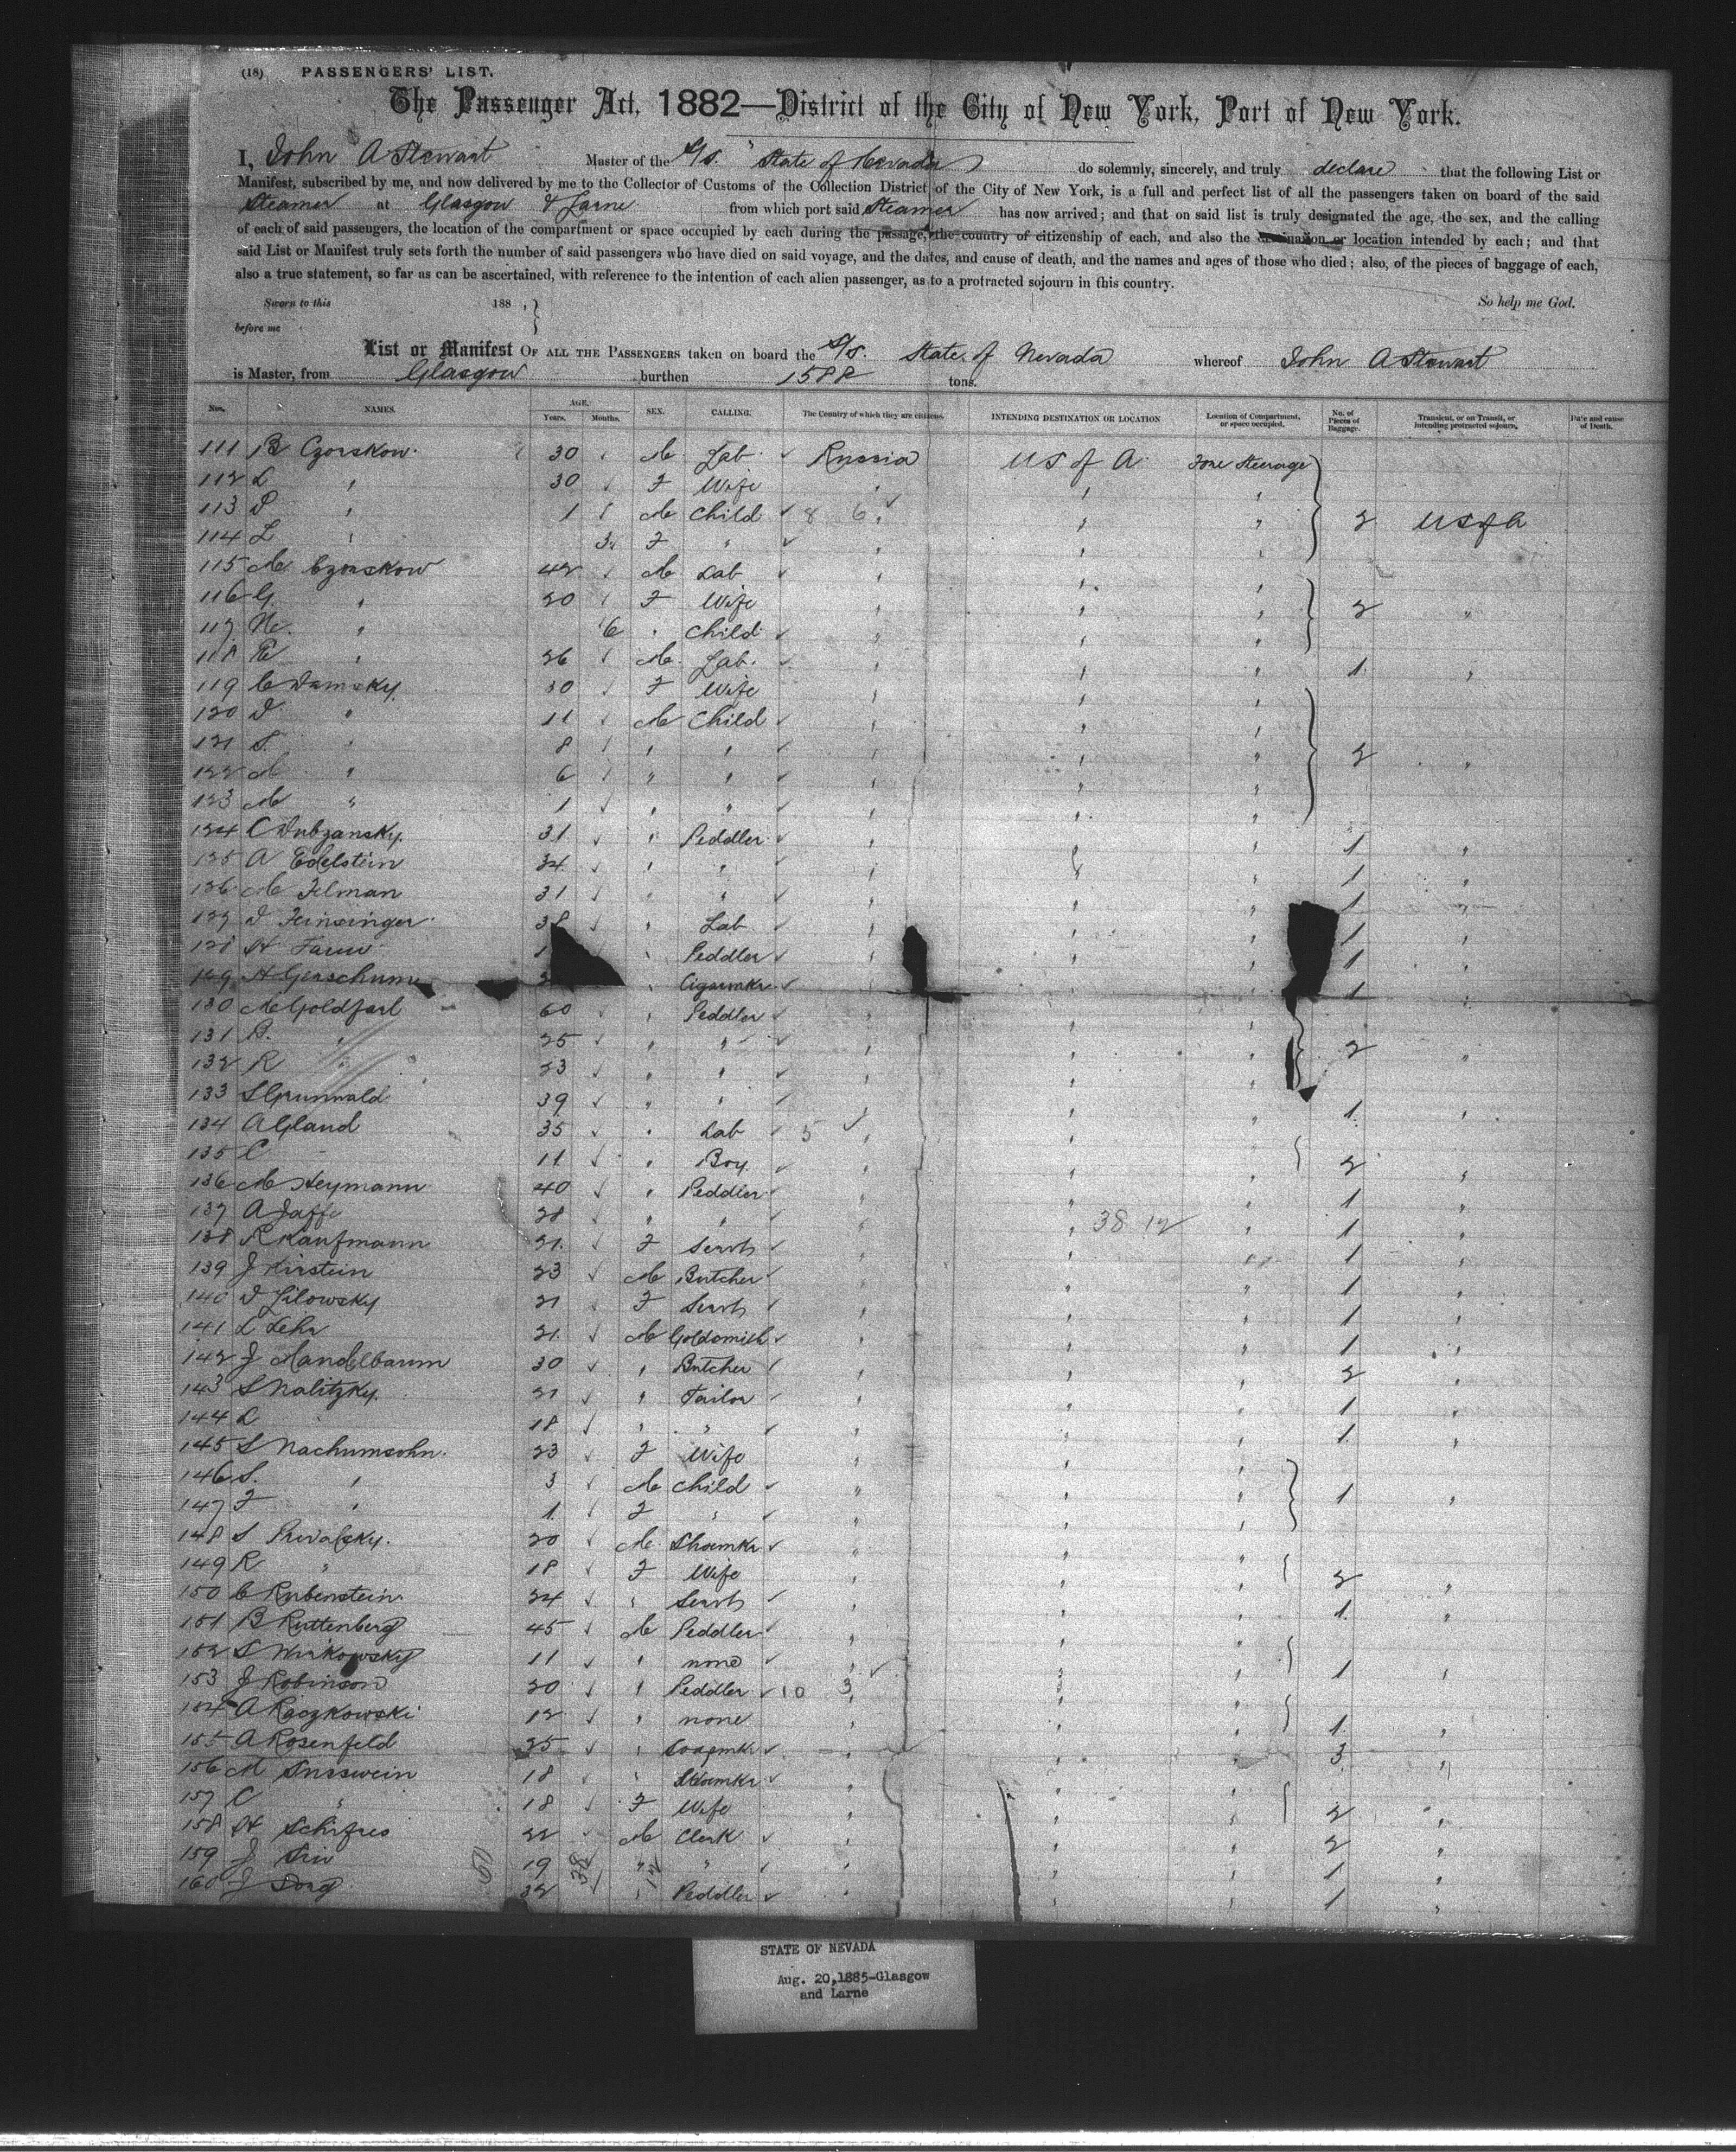 (18) PASSENGERS' LIST.
The Passenger Act, 1882—District of the City of New York, Port of New York.
I, John A Stewart Master of the S/S. "State of Nevada do solemnly, sincerely, and truly declare that the following List or
Manifest, subscribed by me, and now delivered by me to the Collector of Customs of the Collection District of the City of New York, is a full and perfect list of all the passengers taken on board of the said
Steamer at Glasgow & Larne from which port said Steamer has now arrived; and that on said list is truly designated the age, the sex, and the calling
of each of said passengers, the location of the compartment or space occupied by each during the passage, the country of citizenship of each, and also the location intended by each; and that
said List or Manifest truly sets forth the number of said passengers who have died on said voyage, and the dates, and cause of death, and the names and ages of those who died; also, of the pieces of baggage of each,
also a true statement, so far as can be ascertained, with reference to the intention of each alien passenger, as to a protracted sojourn in this country.
Sworn to this 188 , So help me God.
before me
List or Manifest OF ALL THE PASSENGERS taken on board the S/S. State of Nevada whereof John A Stewart
is Master, from Glasgow burthen 1588 tons.
Nos. NAMES. AGE. Years. Months. SEX. CALLING. The Country of which they are citizens. INTENDING DESTINATION OR LOCATION Location of Compartment, or space occupied. No. of Pieces of Baggage. Transient, or on Transit, or intending protracted sojourn. Date and cause of Death.
111 B Czorskow 30 M Lab Russia US of A Fore Steerage
112 L " 30 F Wife " " "
113 D " 1 M Child 8 6 " " " 2 US of A
114 L " 3 F " " " "
115 M Czorskow 42 M Lab " " "
116 G " 20 F Wife " " " 2 "
117 " 6 " Child " " "
118 " 26 M Lab " " " 1 "
119 C Damsky 30 F Wife " " "
120 D " 11 M Child " " "
121 S. " 8 " " " " " 2 "
122 M " 6 " " " " "
123 M " 1 " " " " "
124 C Dubzansky 31 " Peddler " " " 1 "
125 A Edelstein 34 " " " " " 1 "
126 M Felman 31 " " " " " 1 "
127 D Feinsinger 38 " Lab " " " 1 "
128 H " Peddler " " " 1 "
129 H Gerschum " Cigarmakr " " 1 "
130 M Goldfarb 60 " Peddler " " "
131 B. " 25 " " " " " 2 "
132 R " 23 " " " " "
133 S Grunwald 39 " " " " " 1 "
134 A Gland 35 " Lab 5 " " "
135 C " 11 " Boy " " " 2 "
136 M Heymann 40 " Peddler " " " 1 "
137 A Jaffe 28 " " " " 38 12 " 1 "
138 R Kaufmann 21 F Servt " " " 1 "
139 J Kirstein 23 M Butcher " " " 1 "
140 D Lilowsky 21 F Servt " " " 1 "
141 L Lehr 21 M Goldsmith " " " 1 "
142 J Mandelbaum 30 " Butcher " " " 2 "
143 S Nalitzky 21 " Tailor " " " 1 "
144 L " 18 " " " " " 1 "
145 S Nachumsohn 23 F Wife " " "
146 S. " 3 M Child " " " 1 "
147 F " 1 F " " " "
148 S 20 M Shoemkr " " "
149 R " 18 F Wife " " " 2 "
150 C Rubenstein 24 " Servt " " " 1 "
151 B Ruttenberg 45 M Peddler " " "
152 S Wirkowsky 11 " none " " " 1 "
153 J Robinson 20 " Peddler 10 3 " " "
154 A Raczkowski 12 " none " " " 1 "
155 A Rosenfeld 25 " Soapmkr " " " 3 "
156 M Susswein 18 " Shoemkr " " "
157 C " 18 F Wife " " " 2 "
158 H Schifres 22 M Clerk " " " 2 "
159 J 19 " " " " " 1 "
160 J 32 " Peddler " " " 1 "
38 12
STATE OF NEVADA
Aug. 20,1885-Glasgow
and Larne